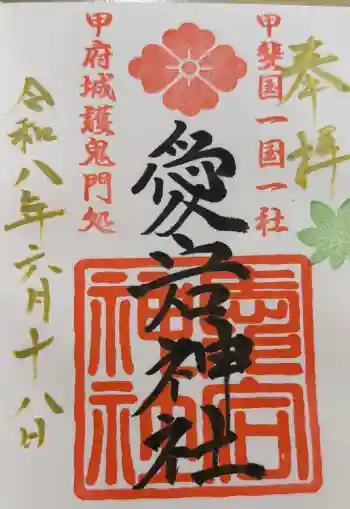 奉拝
甲斐国一国一社
愛宕神社
甲府城護鬼門処
令和八年六月十八日
愛宕神社